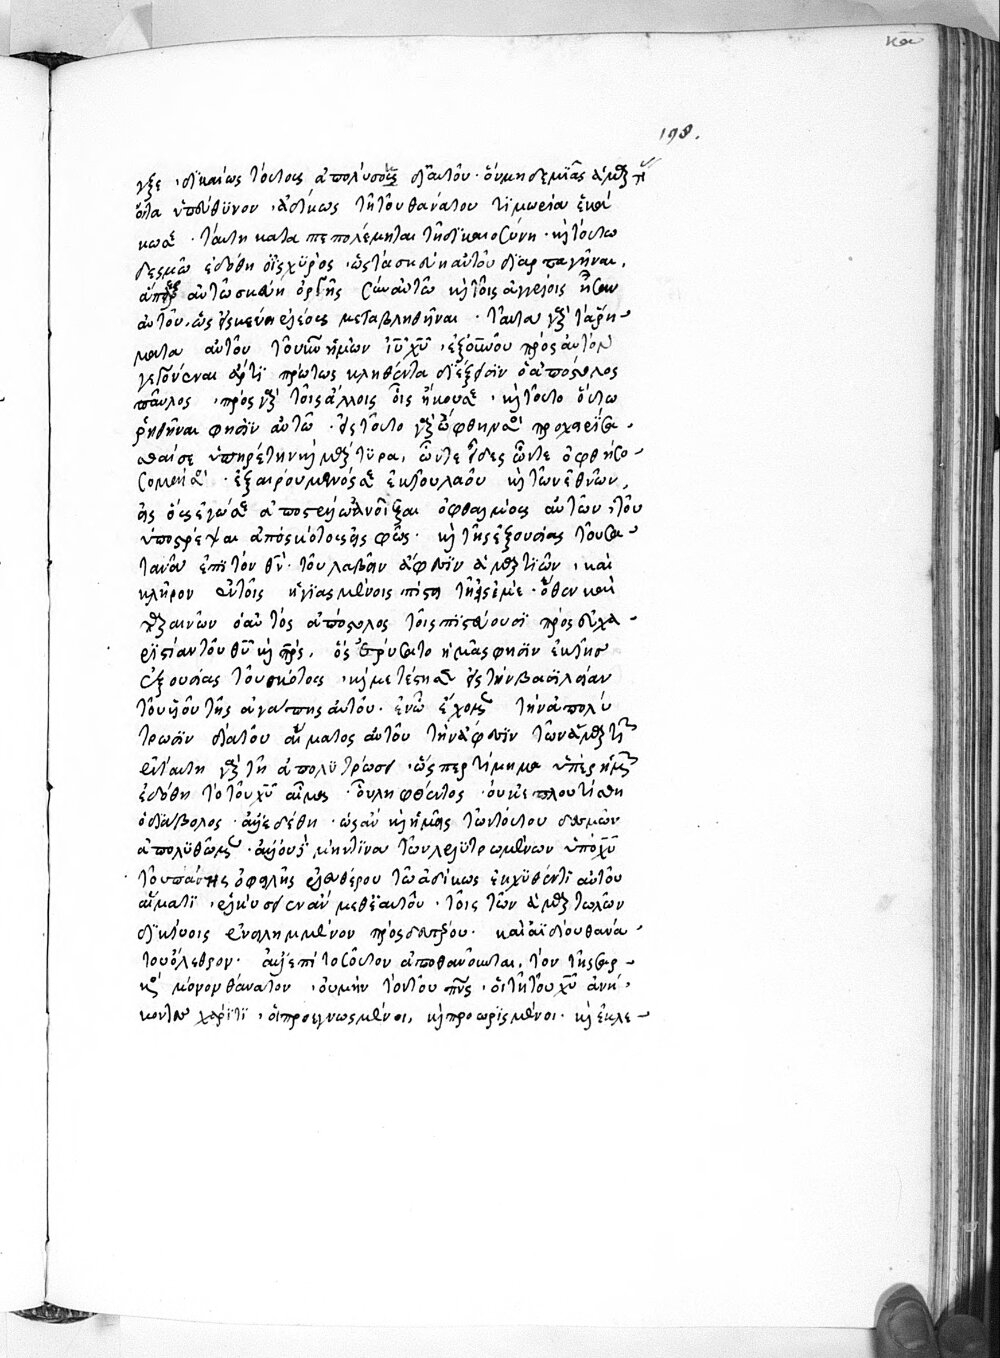 κα
198.
γξε · δικαίως τούτοις ἀπολύσας δι αὐτοῦ · ὃν μηδεμιᾶς ἁμαρτ
ὄντα ὑπεύθυνον · ἀδίκως τῆ τοῦ θανάτου τιμωρία
· ταύτη καταπεπολέμηται τῆ δικαιοσύνη · κ τούτω
δεσμῶ ἐδόθη ὁ ἰσχυρός · ὥς τὰ σκεύη αὐτοῦ διαρπαγῆναι,
ἅπερ αὐτῶ σκεύη ὀργῆς σὺν αὐτῶ κ τοῖς ἀγγέλοις
αὐτοῦ · ὡς εἰς σκεύη ἐλέους μεταβληθῆναι · ταῦτα γὰρ τὰ ῥή-
ματα αὐτοῦ τοῦ κῦ ἡμῶν ἰῦ χῦ · ἐξ οὐνοῦ πρὸς αὐτὸν
γεγονέναι ἄρτι πρώτως κληθέντα διέξεισιν ὁ ἀπόστολος
παῦλος · πρὸς γὰρ τοῖς ἄλλοις οἷς ἤκουσε · κ τοῦτο οὕτω
ῥηθῆναι φησὶν αὐτῶ · εἰς τοῦτο γὰρ ὤφθην σοι προχειρίσα-
σθαί σε ὑπηρέτην κ μάρτυρα, ὧν τε εἶδες ὧν τε ὀφθήσο-
σομαί σοι · ἐξαιρούμενός σε ἐκ τοῦ λαοῦ κ τῶν ἐθνῶν,
εἰς οὓς ἐγώ σε ἀποστέλλω ἀνοῖξαι ὀφθαλμοὺς αὐτῶν, τοῦ
ὑποστρέψαι ἀπὸ σκότους εἰς φῶς · κ τῆς ἐξουσίας τοῦ σα-
τανᾶ ἐπὶ τὸν θν · τοῦ λαβεῖν ἄφεσιν ἁμαρτιῶν, καὶ
κλῆρον ἐν τοῖς ἡγιασμένοις πίστει τῆ εἰς ἐμέ · ὅθεν καὶ
παραινῶν ὁ αὐτὸς ἀπόστολος τοῖς πιστεύουσι πρὸς εὐχα-
ριστίαν τοῦ θῦ κ πρς, ὃς ἐρύσατο ἡμᾶς φησὶν ἐκ τῆς
ἐξουσίας τοῦ σκότους · κ μετέστησεν εἰς τὴν βασιλείαν
τοῦ υἱοῦ τῆς ἀγάπης αὐτοῦ · ἐν ᾧ ἔχομεν τὴν ἀπολύ
τρωσιν διὰ τοῦ αἵματος αὐτοῦ τὴν ἄφεσιν τῶν ἁμαρτι
ἐν ταύτη γὰρ τῆ ἀπολυτρώσει · ὥσπερ τίμημα ὑπὲρ ἡμῶν
ἐδόθη τὸ τοῦ χῦ αἷμα · οὗ ληφθέντος · οὐκ ἐπλουτίσθη
ὁ διάβολος · ἀλλ ἐδέθη · ὡς ἂν κ ἡμεῖς τῶν τούτου δεσμῶν
ἀπολυθῶμεν · μήν τινα τῶν λελυτρωμένων ὑπὸ χῦ
τοῦ πάσης ὀφειλῆς ἐλευθέρου τῶ ἀδίκως ἐκχυθέντι αὐτοῦ
αἵματι · ἑλκύσῃ ἂν μεθ ἑαυτοῦ · τοῖς τῶν ἁμαρτωλῶν
δικτύοις ἐνειλημμένον πρὸς δευτέρου · καὶ ἀϊδίου θανά-
του ὄλεθρον · ἀλλ ἐπὶ τοσοῦτον ἀποθανοῦνται, τὸν τῆς σαρ-
κὸς μόνον θάνατον · οὐ μὴν τὸν τοῦ πνς · οἱ τῆ τοῦ χῦ ἀνή-
κοντες χάριτι · οἱ προεγνωσμένοι, κ προωρισμένοι · κ ἐκλε-